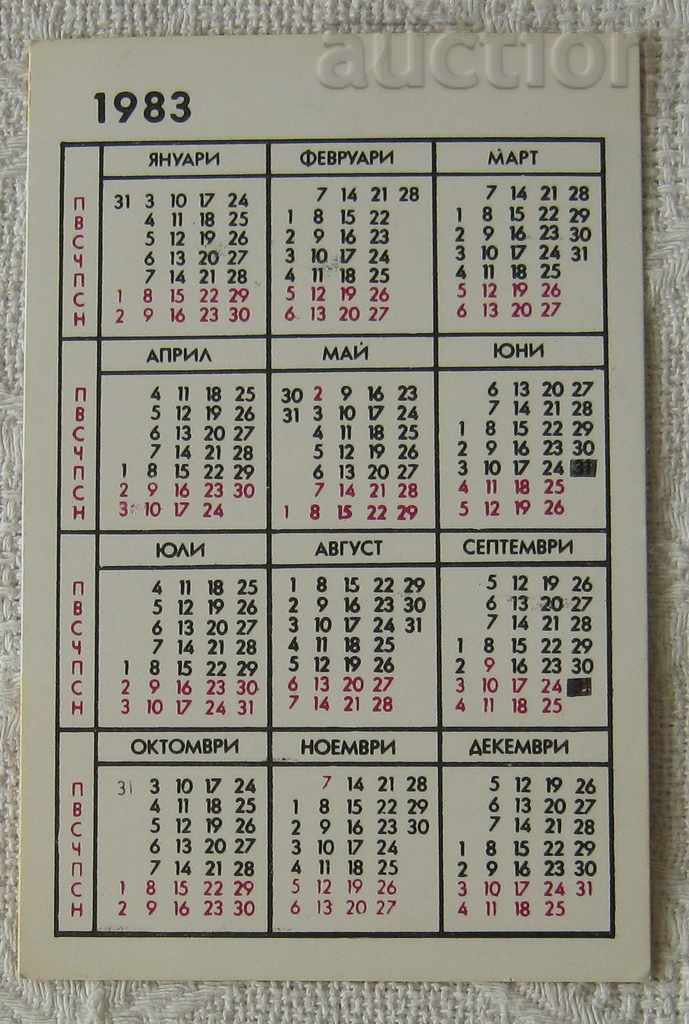 auction
1983
ЯНУАРИ ФЕВРУАРИ МАРТ
П 31 3 10 17 24 7 14 21 28 7 14 21 28
В 4 11 18 25 1 8 15 22 1 8 15 22 29
С 5 12 19 26 2 9 16 23 2 9 16 23 30
Ч 6 13 20 27 3 10 17 24 3 10 17 24 31
П 7 14 21 28 4 11 18 25 4 11 18 25
С 1 8 15 22 29 5 12 19 26 5 12 19 26
Н 2 9 16 23 30 6 13 20 27 6 13 20 27
АПРИЛ МАЙ ЮНИ
П 4 11 18 25 30 2 9 16 23 6 13 20 27
В 5 12 19 26 31 3 10 17 24 7 14 21 28
С 6 13 20 27 4 11 18 25 1 8 15 22 29
Ч 7 14 21 28 5 12 19 26 2 9 16 23 30
П 1 8 15 22 29 6 13 20 27 3 10 17 24 31
С 2 9 16 23 30 7 14 21 28 4 11 18 25
Н 3 10 17 24 1 8 15 22 29 5 12 19 26
ЮЛИ АВГУСТ СЕПТЕМВРИ
П 4 11 18 25 1 8 15 22 29 5 12 19 26
В 5 12 19 26 2 9 16 23 30 6 13 20 27
С 6 13 20 27 3 10 17 24 31 7 14 21 28
Ч 7 14 21 28 4 11 18 25 1 8 15 22 29
П 1 8 15 22 29 5 12 19 26 2 9 16 23 30
С 2 9 16 23 30 6 13 20 27 3 10 17 24
Н 3 10 17 24 31 7 14 21 28 4 11 18 25
ОКТОМВРИ НОЕМВРИ ДЕКЕМВРИ
П 31 3 10 17 24 7 14 21 28 5 12 19 26
В 4 11 18 25 1 8 15 22 29 6 13 20 27
С 5 12 19 26 2 9 16 23 30 7 14 21 28
Ч 6 13 20 27 3 10 17 24 1 8 15 22 29
П 7 14 21 28 4 11 18 25 2 9 16 23 30
С 1 8 15 22 29 5 12 19 26 3 10 17 24 31
Н 2 9 16 23 30 6 13 20 27 4 11 18 25